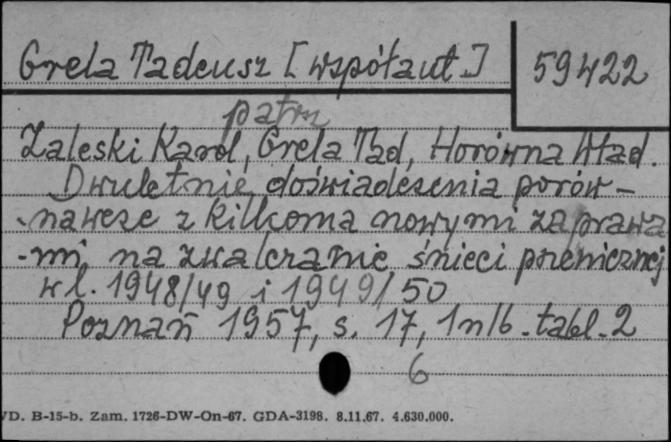 Grela Tadeusz [współaut.]
59422
patrz
Zaleski Karol, Grela Tad, Horówna Wład.
Dwuletnie doświadczenia porów-
nawcze z kilkoma nowymi zaprawa
-mi na zwalczanie śnieci pszenicznej
w l. 1948/49 i 1949/50
Poznań 1957, s. 17, 1 nlb. tabl. 2
6
VD. B-15-b. Zam. 1726-DW-On-67. GDA-3198. 8.11.67. 4.630.000.